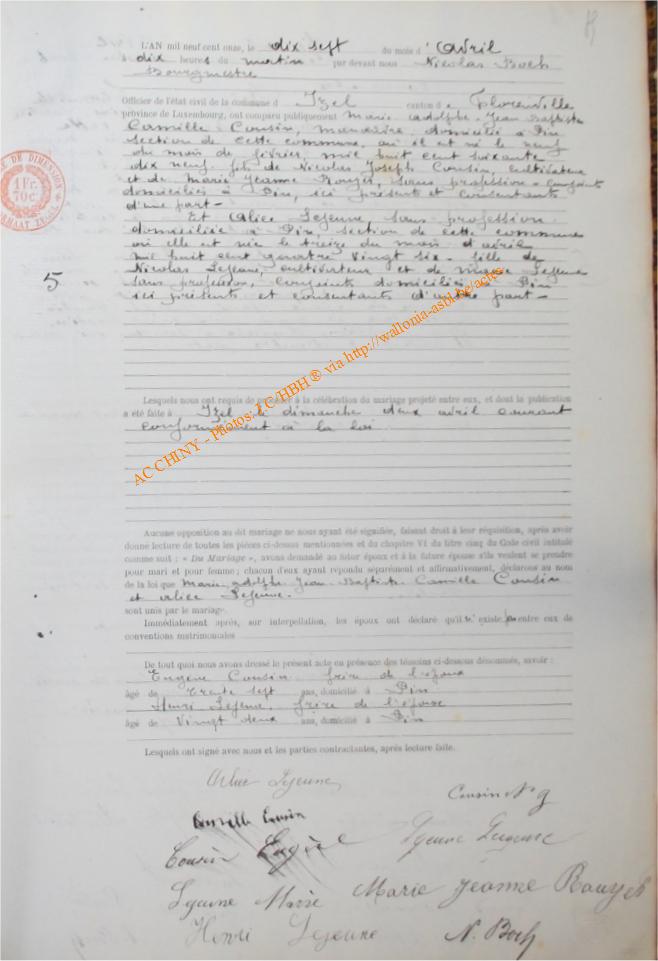 L'AN mil neuf cent onze, le dix sept du mois d'Avril
à dix heures du matin par devant nous Nicolas Boch
Bourgmestre
Officier de l'état civil de la commune d Izel canton de Florenville
province de Luxembourg, ont comparu publiquement Marie Adolphe Jean Baptiste
Camille Cousin, manœuvre domicilié à Pin
section de cette commune, où il est né le neuf
du mois de février, mil huit cent soixante
dix neuf, fils de Nicolas Joseph Cousin, cultivateur
et de Marie Jeanne sans profession conjoints
domiciliés à Pin, ici présents et consentants
d'une part –
Et Alice Lejeune, sans profession
domiciliée à Pin, section de cette commune
où elle est née le treize du mois d'avril
mil huit cent quatre vingt six – fille de
Nicolas Lejeune, cultivateur et de Marie Lejeune
sans profession, conjoints domiciliés à Pin
ici présents et consentants d'autre part –
5
Lesquels nous ont requis de procéder à la célébration du mariage projeté entre eux, et dont la publication
a été faite à Izel le dimanche deux avril courant
conformément à la loi
Aucune opposition au dit mariage ne nous ayant été signifiée, faisant droit à leur réquisition, après avoir
donné lecture de toutes les pièces ci-dessus mentionnées et du chapitre VI du titre cinq du Code civil intitulé
comme suit : « Du Mariage », avons demandé au futur époux et à la future épouse s'ils veulent se prendre
pour mari et pour femme; chacun d'eux ayant répondu séparément et affirmativement, déclarons au nom
de la loi que Marie Adolphe Jean Baptiste Camille Cousin
et Alice Lejeune.
sont unis par le mariage.
Immédiatement après, sur interpellation, les époux ont déclaré qu'il n'existe pas entre eux de
conventions matrimoniales
De tout quoi nous avons dressé le présent acte en présence des témoins ci-dessous dénommés, savoir :
Eugène Cousin frère de l'époux
âgé de trente sept ans, domicilié à Pin
Henri Lejeune, frère de l'épouse
âgé de vingt deux ans, domicilié à Pin
Lesquels ont signé avec nous et les parties contractantes, après lecture faite.
Alice Lejeune
Cousin N g
Camille Cousin
Cousin Eugène Lejeune
Lejeune Marie Marie Jeanne
Henri Lejeune N. Boch
AC CHINY - Photos: I C/HBH ® via http://wallonia-asbl.be/actes
DE DIMENSION
1 Fr.
70c